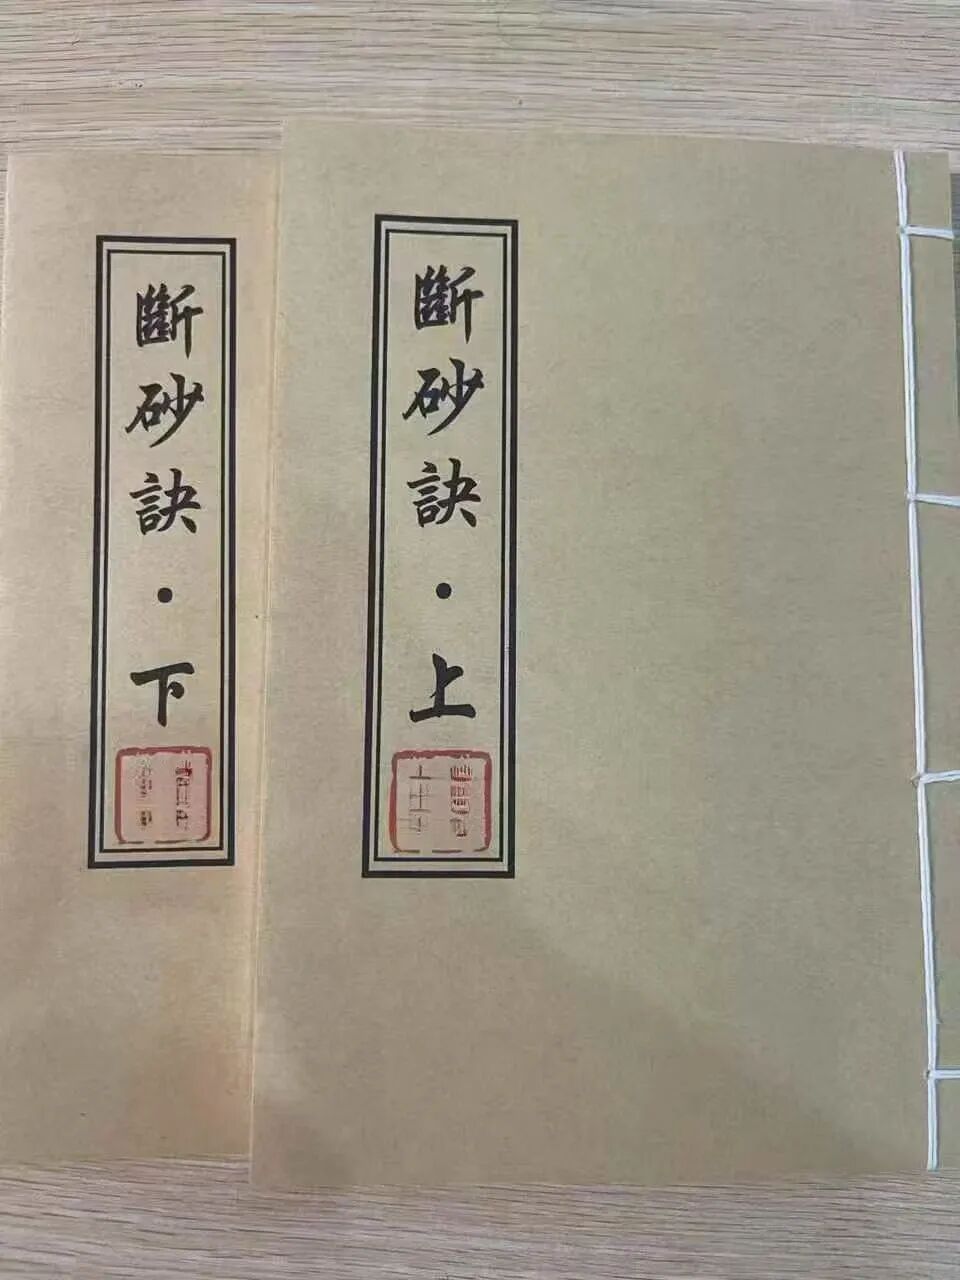 斷砂訣·上
斷砂訣·下